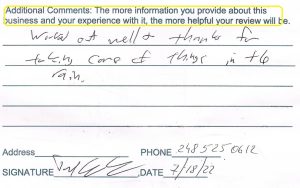 Additional Comments: The more information you provide about this
business and your experience with it, the more helpful your review will be.
Worked out well & thanks for
taking care of things in the
rain.
Address
PHONE 248 525 0612
SIGNATURE DATE 7/18/22